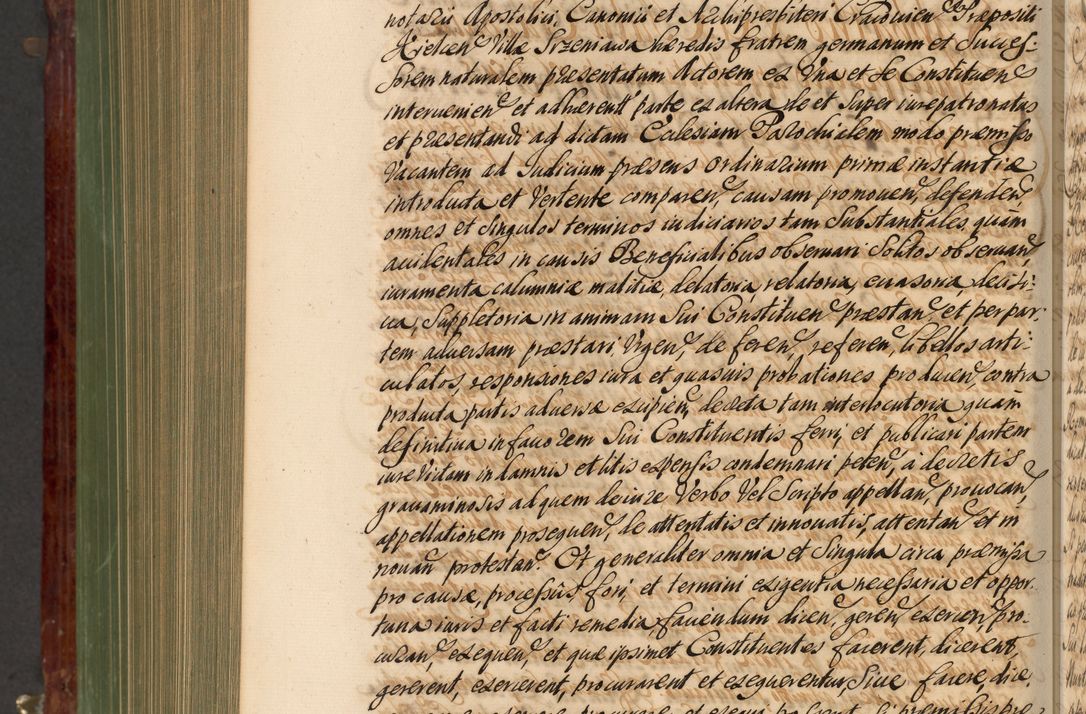 notarii Apostolici, Canonici et Archipresbiteri Cracovien Præpositi
Kielcen Villæ Szreniawa hæredis fratrem germanum et Succes-
sorem naturalem præsentatum Actorem ex Una et se Constituen
intervenien et adhæren parte ex altera de et super iure patronatus
et præsentandi ad dictam Ecclesiam Parochialem modo præmisso
Vacantem ad Judicium præsens Ordinarium primæ instantiæ
introducta et Vertente comparen, causam promoven, defenden
omnes et singulos terminos iudiciarios tam Substantiales quam
accidentales in causis Beneficialibus observari Solitos observan
iuramenta calumniæ malitiæ, delatoria, relatoria, evasoria, decisi-
va, Suppletoria in animam Sui Constituen præstan, et per par-
tem adversam præstari Urgen, deferen, referen, libellos arti-
culatos, responsiones iura et quasvis probationes producen, contra
producta partis adversæ excipien, decreta tam interlocutoria quam
definitiva in favorem Sui Constituentis ferri, et publicari partem
iure Victam in damnis et litis expensis condemnari peten, a decretis
gravaminosis ad quem de iure Verbo Vel Scripto appellan, provocan,
appellationem prosequen, de attentatis et innovatis, attentan et in
novan protestan. Et generaliter omnia et Singula circa præmissa
pro causæ, processus fori, et termini exigentia necessaria et oppor-
tuna iuris et facti remedia, faciendum dicen, geren, exerceri pro-
curan, exequen, et quæ ipsimet Constituentes facerent, dicerent,
gererent, exercerent, procurarent et exequerentur, Sive facere, dice-